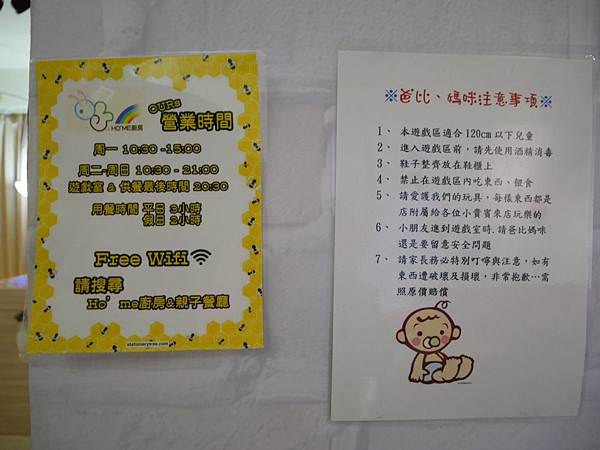 HO'ME廚房
OURs
營業時間
周一 10:30 -15:00
周二-周日 10:30 - 21:00
遊戲室 & 供餐最後時間 20:30
用餐時間 平日 3小時
假日 2小時
Free Wifi
請搜尋
Ho' me廚房&親子餐廳
stationarytree.com
※爸比、媽咪注意事項※
1、 本遊戲區適合 120cm 以下兒童
2、 進入遊戲區前，請先使用酒精消毒
3、 鞋子整齊放在鞋櫃上
4、 禁止在遊戲區內吃東西、餵食
5、 請愛護我們的玩具，每樣東西都是
店附屬給各位小貴賓來店玩樂的
6、 小朋友進到遊戲室時,請爸比媽咪
還是要留意安全問題
7、 請家長務必特別叮嚀與注意，如有
東西遭破壞及損壞，非常抱歉…需
照原價賠償